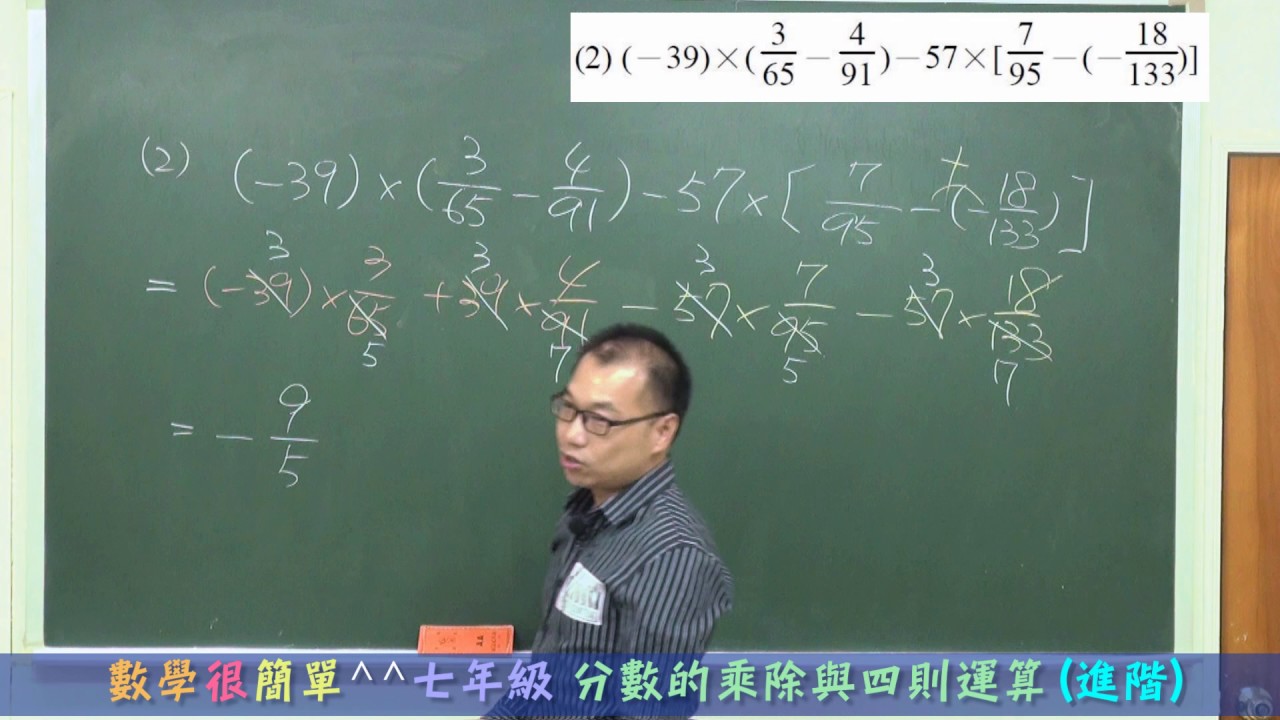 (2) (－39)×(3/65－4/91)－57×[7/95－(－18/133)]
(2) (-39)×(3/65-4/91)-57×[7/95-(-18/133)]
+
3 3 3 3
=(-39)×3/65+39×4/91-57×7/95-57×18/133
5 7 5 7
=-9/5
數學很簡單^^七年級 分數的乘除與四則運算(進階)